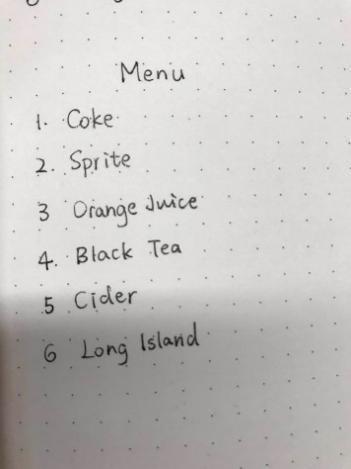 Menu
1. Coke
2. Sprite
3 Orange Juice
4. Black Tea
5 Cider
6 Long Island